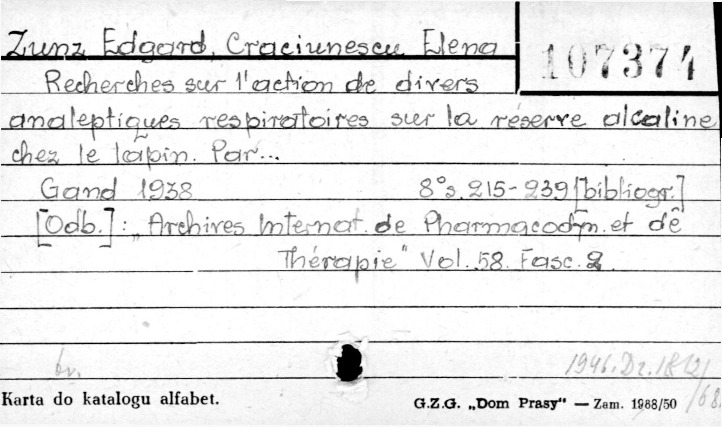 Zunz Edgard, Craciunescu Elena
107374
Recherches sur l'action de divers
analeptiques respiratoires sur la réserve alcaline
chez le lapin. Par...
Gand 1938 8° s. 215-239 [bibliogr.]
[Odb.]: „Archives Internat. de Pharmacodyn. et de
Thérapie" Vol. 58. Fasc. 2.
br.
1946. Dz. 18121
/68
Karta do katalogu alfabet.
G.Z.G. „Dom Prasy" — Zam. 1988/50